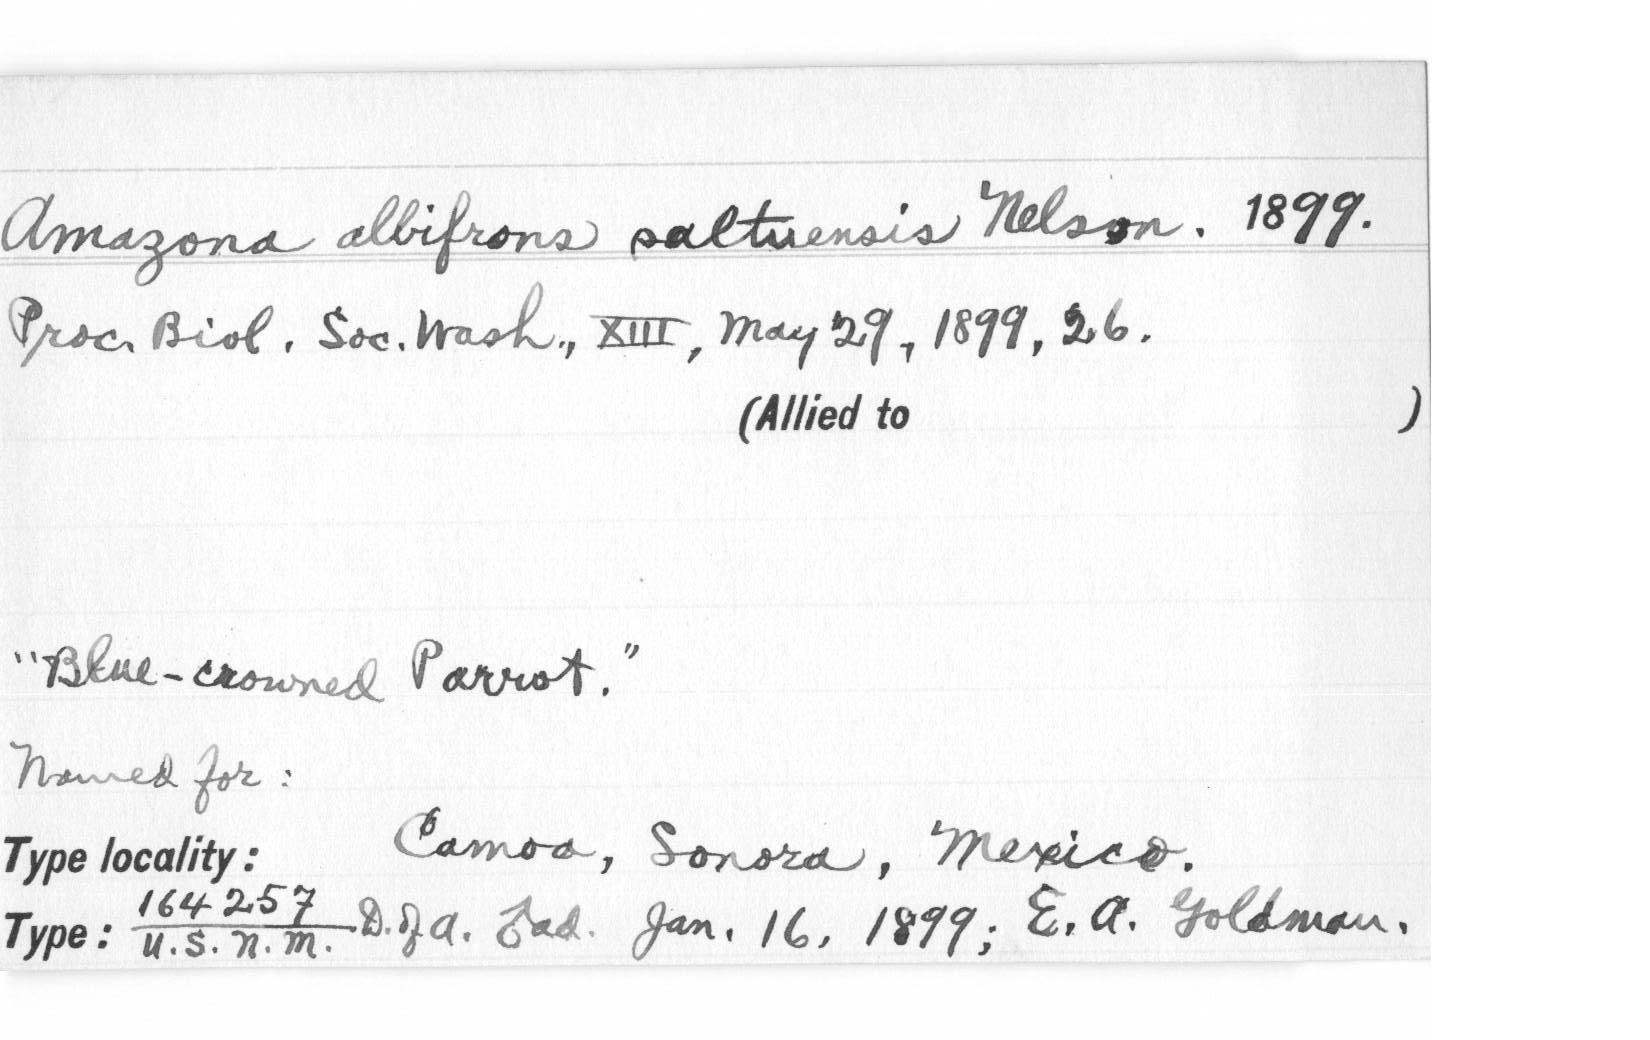 Amazona albifrons saltuensis Nelson. 1899.
Proc. Biol. Soc. Wash., XIII, May 29, 1899, 26.
(Allied to )
"Blue-crowned Parrot."
Named for:
Type locality: Camoa, Sonora, Mexico.
Type: 164257 U.S.N.M. D. of A. ad. Jan. 16, 1899; E. A. Goldman.